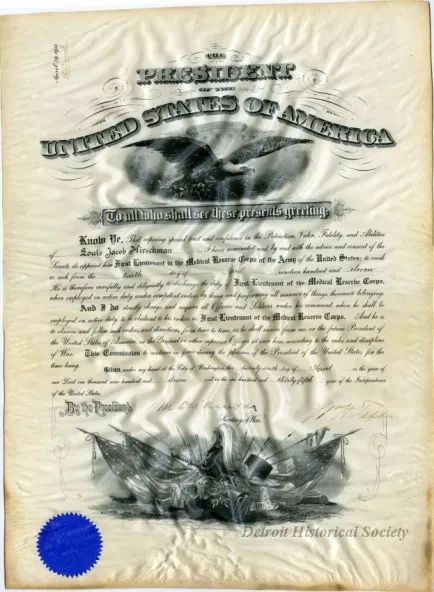 THE
PRESIDENT
OF THE
UNITED STATES OF AMERICA
To all who shall see these presents greeting:
Know Ye, That reposing special trust and confidence in the Patriotism, Valor, Fidelity, and Abilities
of Louis Jacob Hirschman I have nominated, and by and with the advice and consent of the
Senate, do appoint him First Lieutenant in the Medical Reserve Corps of the Army of the United States; to rank
as such from the tenth day of nineteen hundred and eleven.
He is therefore carefully and diligently to discharge the duty of First Lieutenant of the Medical Reserve Corps,
when employed on active duty under competent orders, by doing and performing all manner of things thereunto belonging.
And I do strictly charge and require all Officers and Soldiers under his command when he shall be
employed on active duty to be obedient to his orders as First Lieutenant of the Medical Reserve Corps. And he is
to observe and follow such orders and directions, from time to time, as he shall receive from me, or the future President of
the United States of America, or the General or other superior Officers set over him, according to the rules and discipline
of War. This Commission to continue in force during the pleasure of the President of the United States for the
time being.
Given under my hand at the City of Washington, this twenty ninth day of April in the year of
our Lord one thousand nine hundred and eleven and in the one hundred and thirty fifth year of the Independence
of the United States.
By the President:
Secretary of War.
Detroit Historical Society